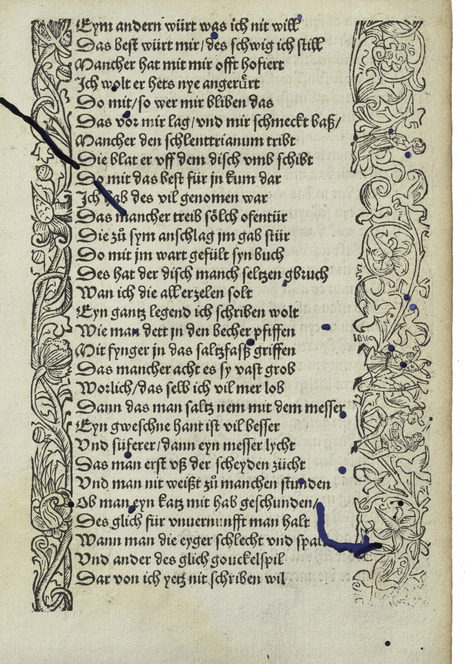 Eym andern würt was ich nit will
Das best würt mir / des schwig ich still
Mancher hat mit mir offt hofiert
Ich wolt er hets nye angerürt
Do mit / so wer mir bliben das
Das vor mir lag / vnd mir schmeckt baß /
Mancher den schlenttrianum tribt
Die blat er vff dem disch vmb schibt
Do mit das best für jn kum dar
Ich hab des vil genomen war
Das mancher treib sölch ofentür
Die zů sym anschlag jm gab stür
Do mit jm wart gefült syn buch
Des hat der disch manch seltzen gbruch
Wan ich die all erzelen solt
Eyn gantz legend ich schriben wolt
Wie man dett jn den becher pfiffen
Mit fynger in das saltzfasß griffen
Das mancher acht es sy vast grob
Worlich / das selb ich vil mer lob
Dann das man saltz nem mit dem messer
Eyn gweschne hant ist vil besser
Vnd süferer / dann eyn messer lycht
Das man erst vß der scheyden zücht
Vnd man nit weißt zů manchen stunden
Ob man eyn katz mit hab geschunden /
Des glich für vnvernunfft man halt
Wann man die eyger schlecht vnd
Vnd ander des glich gouckelspil
Dar von ich yetz nit schriben wil